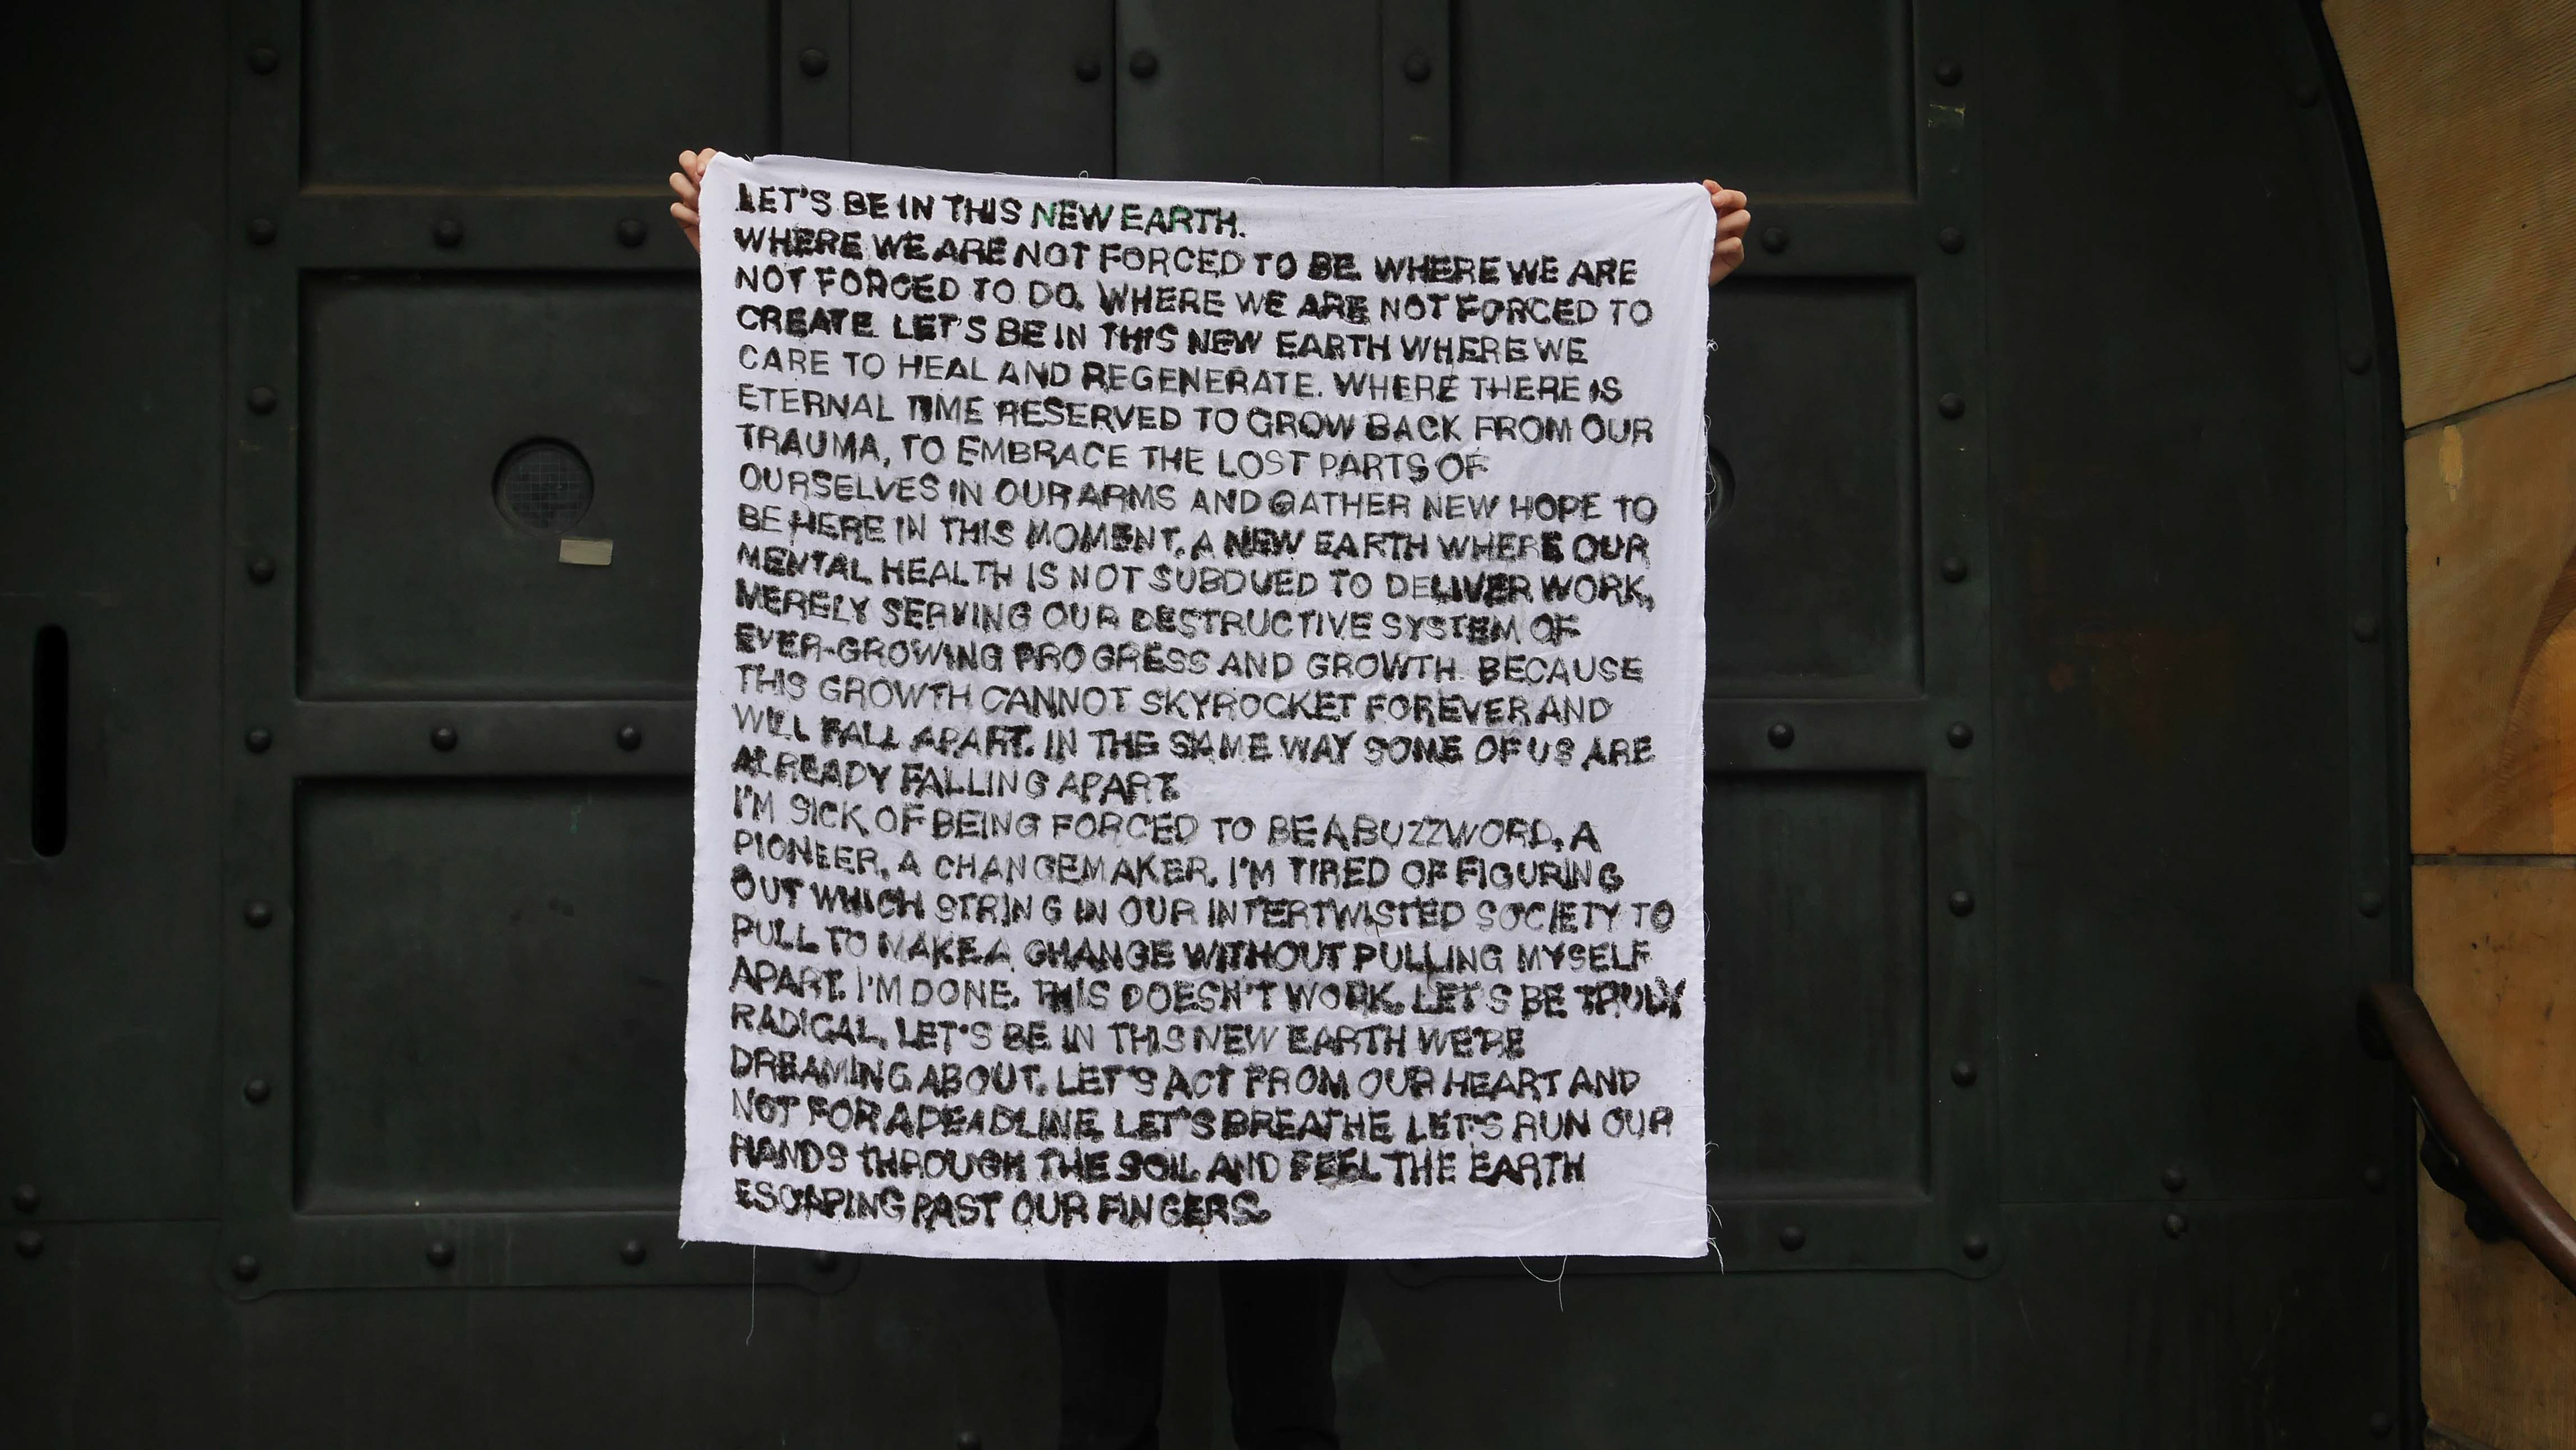 LET'S BE IN THIS NEW EARTH.
WHERE WE ARE NOT FORCED TO BE. WHERE WE ARE
NOT FORCED TO DO. WHERE WE ARE NOT FORCED TO
CREATE. LET'S BE IN THIS NEW EARTH WHERE WE
CARE TO HEAL AND REGENERATE. WHERE THERE IS
ETERNAL TIME RESERVED TO GROW BACK FROM OUR
TRAUMA, TO EMBRACE THE LOST PARTS OF
OURSELVES IN OUR ARMS AND GATHER NEW HOPE TO
BE HERE IN THIS MOMENT. A NEW EARTH WHERE OUR
MENTAL HEALTH IS NOT SUBDUED TO DELIVER WORK,
MERELY SERVING OUR DESTRUCTIVE SYSTEM OF
EVER-GROWING PROGRESS AND GROWTH. BECAUSE
THIS GROWTH CANNOT SKYROCKET FOREVER AND
WILL FALL APART. IN THE SAME WAY SOME OF US ARE
ALREADY FALLING APART.
I'M SICK OF BEING FORCED TO BE A BUZZWORD, A
PIONEER, A CHANGEMAKER. I'M TIRED OF FIGURING
OUT WHICH STRING IN OUR INTERTWISTED SOCIETY TO
PULL TO MAKE A CHANGE WITHOUT PULLING MYSELF
APART. I'M DONE. THIS DOESN'T WORK. LET'S BE TRULY
RADICAL, LET'S BE IN THIS NEW EARTH WE'RE
DREAMING ABOUT. LET'S ACT FROM OUR HEART AND
NOT FOR A DEADLINE. LET'S BREATHE. LET'S RUN OUR
HANDS THROUGH THE SOIL AND FEEL THE EARTH
ESCAPING PAST OUR FINGERS.